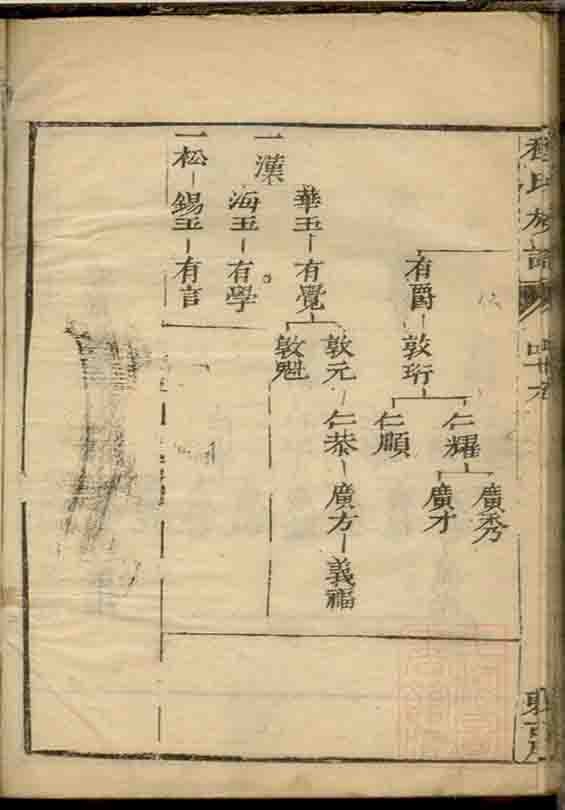 程氏族譜
有爵
敦珩
仁耀
仁順
廣秀
廣才
一漢
華玉
有覺
敦元
敦魁
仁恭
廣方
義福
海玉
有學
一松
錫玉
有言